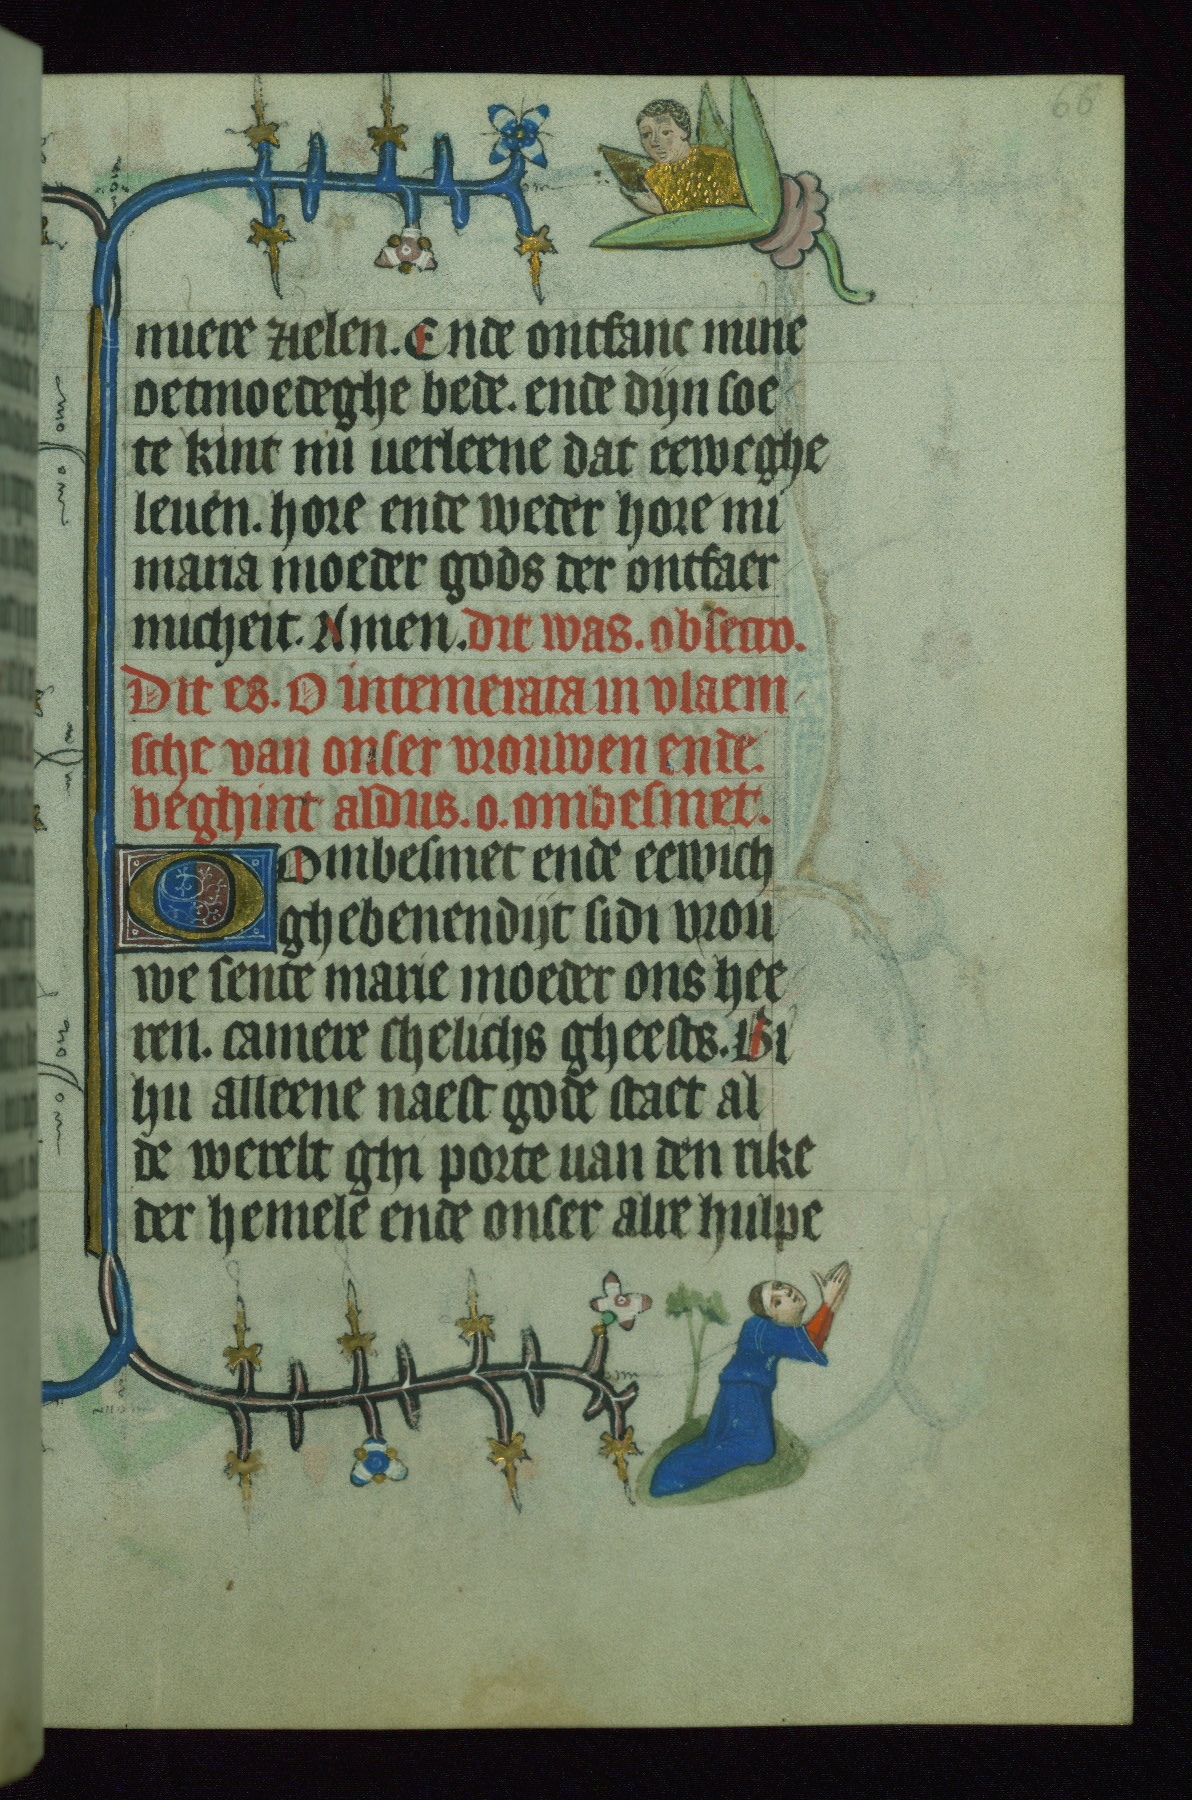 66
mijere zielen. Ende ontfanc mine
oetmoedeghe bede. ende dijn soe
te kint mi verleene dat eeweghe
leven. hore ende weder hore mi
maria moeder gods der ontfaer
micheit. Amen. dit was. obsecro.
Dit es. O intemerata in vlaem
sche van onser vrouwen ende.
beghint aldus. o. ombesmet.
O ombesmet ende eewich
ghebenendijt sidi vrou
we sente marie moeder ons hee
ren. camere shelichs gheests. Bi
hu alleene naest gode staet al
de werelt ghi porte van den rike
der hemele ende onser alre hulpe